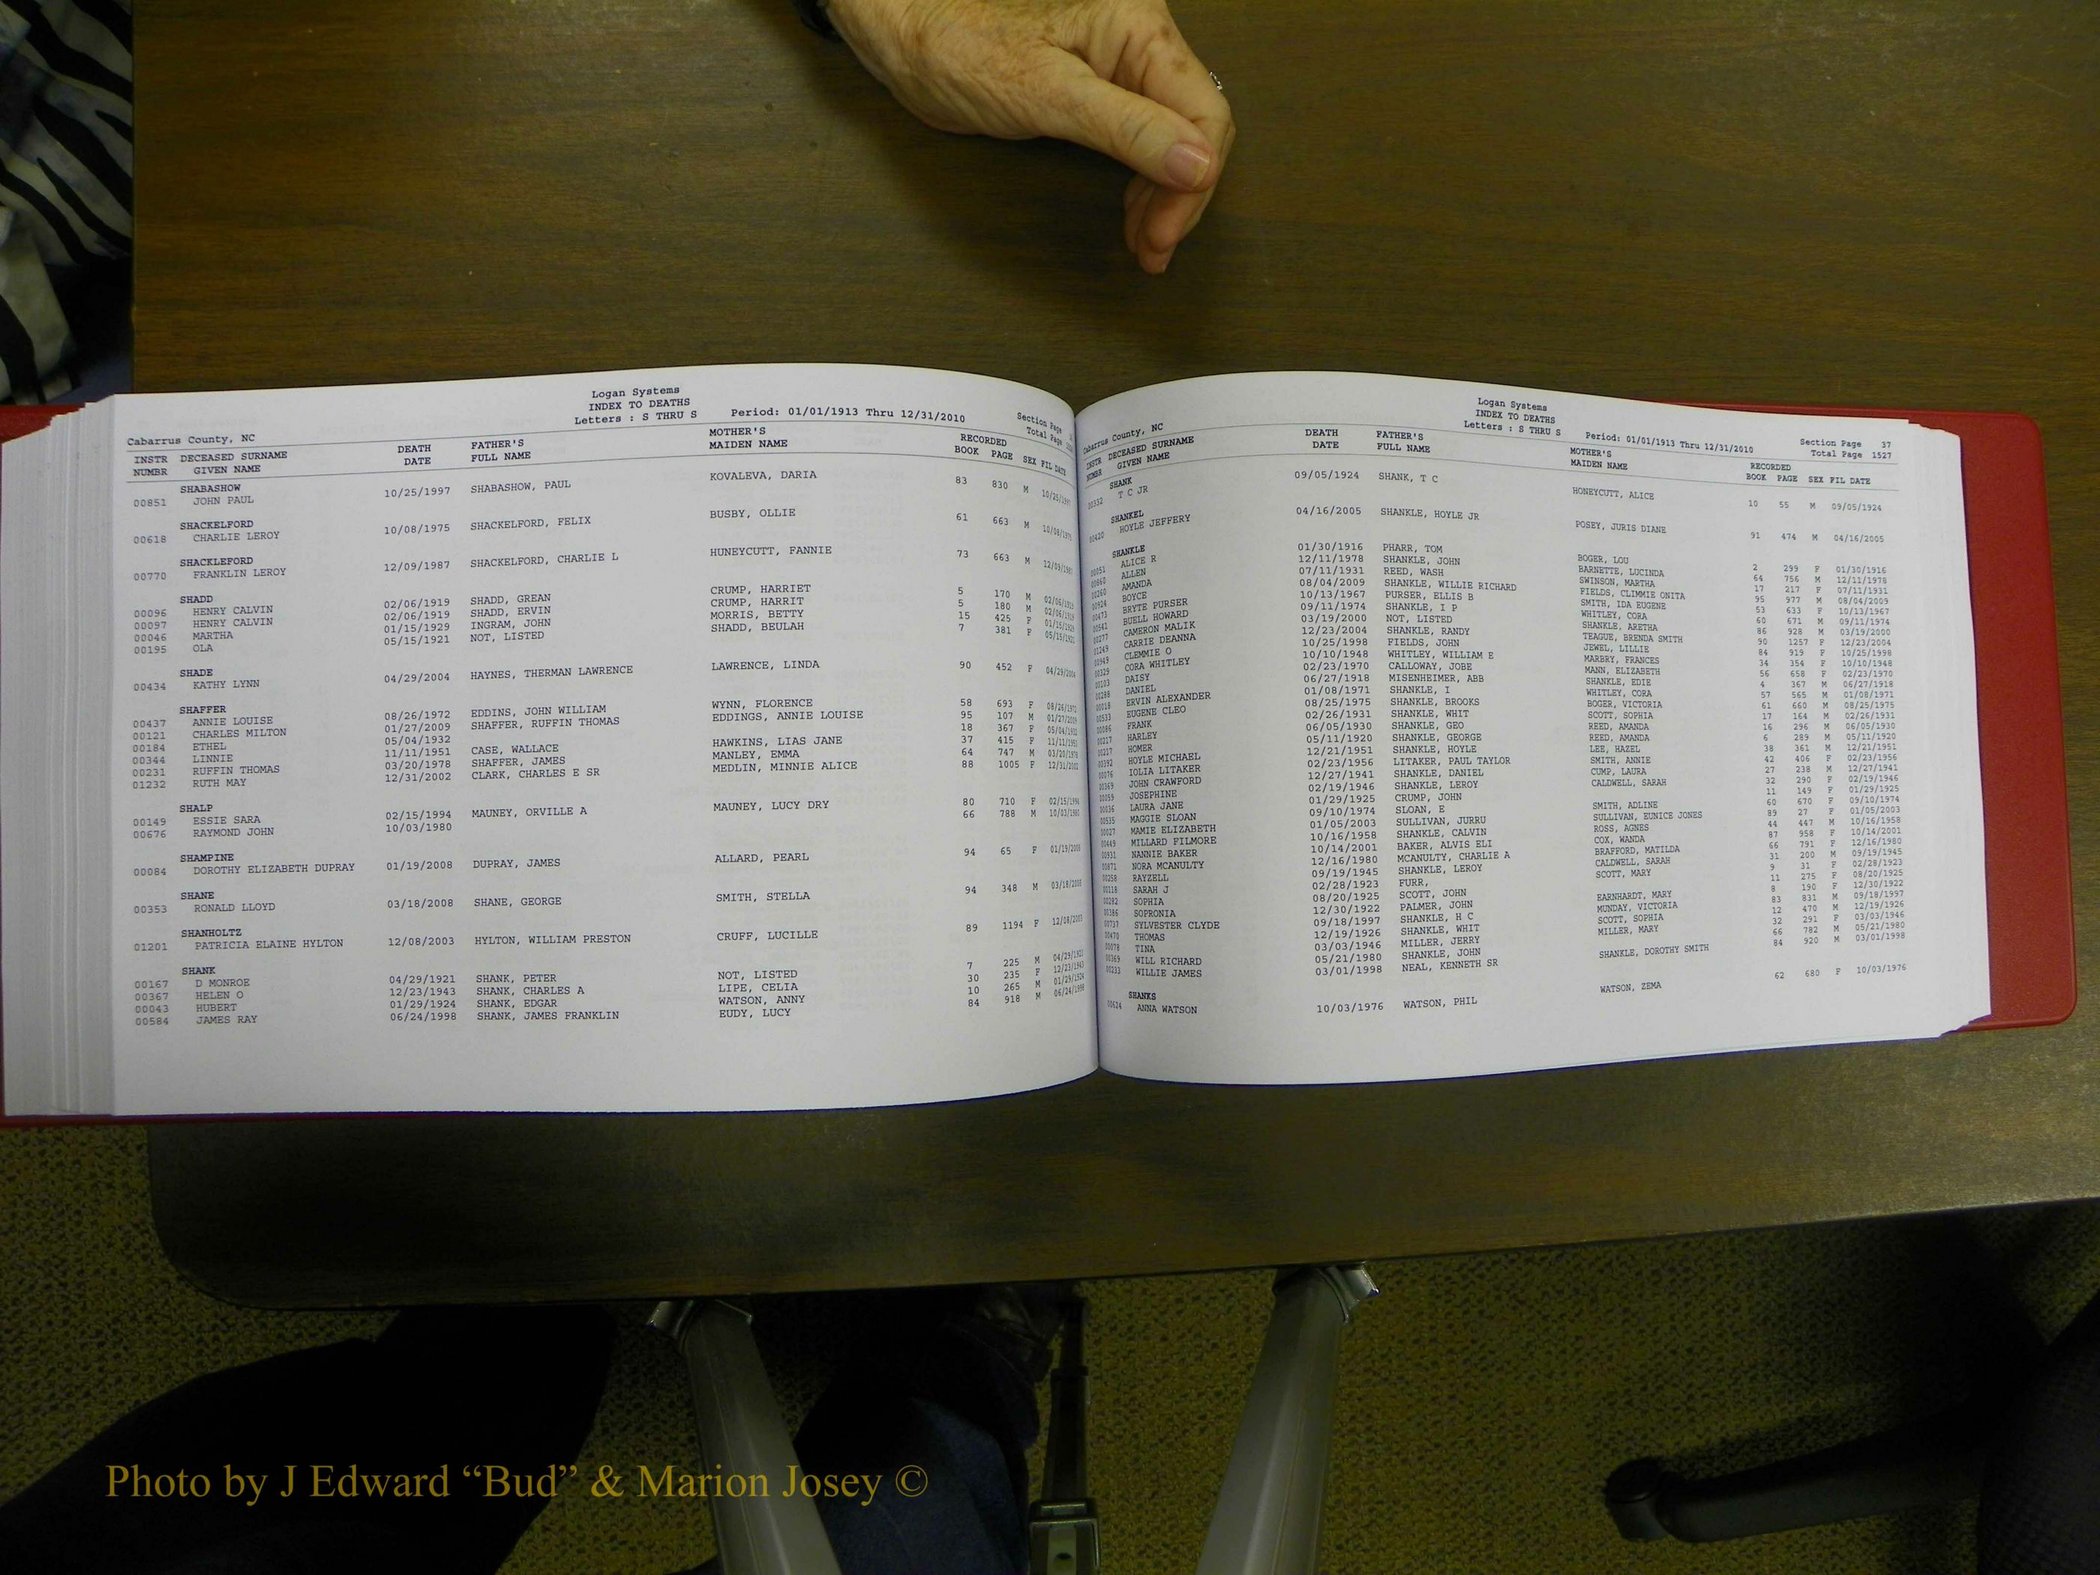 Logan Systems
INDEX TO DEATHS
Letters : S THRU S Period: 01/01/1913 Thru 12/31/2010 Section Page
Cabarrus County, NC Total Page
INSTR DECEASED SURNAME DEATH FATHER'S MOTHER'S RECORDED
NUMBR GIVEN NAME DATE FULL NAME MAIDEN NAME BOOK PAGE SEX FIL DATE
SHABASHOW
00851 JOHN PAUL 10/25/1997 SHABASHOW, PAUL KOVALEVA, DARIA 83 830 M 10/25/1997
SHACKELFORD
00618 CHARLIE LEROY 10/08/1975 SHACKELFORD, FELIX BUSBY, OLLIE 61 663 M 10/08/1975
SHACKLEFORD
00770 FRANKLIN LEROY 12/09/1987 SHACKELFORD, CHARLIE L HUNEYCUTT, FANNIE 73 663 M 12/09/1987
SHADD
00096 HENRY CALVIN 02/06/1919 SHADD, GREAN CRUMP, HARRIET 5 170 M 02/06/1919
00097 HENRY CALVIN 02/06/1919 SHADD, ERVIN CRUMP, HARRIT 5 180 M 02/06/1919
00046 MARTHA 01/15/1929 INGRAM, JOHN MORRIS, BETTY 15 425 F 01/15/1929
00195 OLA 05/15/1921 NOT, LISTED SHADD, BEULAH 7 381 F 05/15/1921
SHADE
00434 KATHY LYNN 04/29/2004 HAYNES, THERMAN LAWRENCE LAWRENCE, LINDA 90 452 F 04/29/2004
SHAFFER
00437 ANNIE LOUISE 08/26/1972 EDDINS, JOHN WILLIAM WYNN, FLORENCE 58 693 F 08/26/1972
00121 CHARLES MILTON 01/27/2009 SHAFFER, RUFFIN THOMAS EDDINGS, ANNIE LOUISE 95 107 M 01/27/2009
00184 ETHEL 05/04/1932 18 367 F 05/04/1932
00344 LINNIE 11/11/1951 CASE, WALLACE HAWKINS, LIAS JANE 37 415 F 11/11/1951
00231 RUFFIN THOMAS 03/20/1978 SHAFFER, JAMES MANLEY, EMMA 64 747 M 03/20/1978
01232 RUTH MAY 12/31/2002 CLARK, CHARLES E SR MEDLIN, MINNIE ALICE 88 1005 F 12/31/2002
SHALP
00149 ESSIE SARA 02/15/1994 MAUNEY, ORVILLE A MAUNEY, LUCY DRY 80 710 F 02/15/1994
00676 RAYMOND JOHN 10/03/1980 66 788 M 10/03/1980
SHAMPINE
00084 DOROTHY ELIZABETH DUPRAY 01/19/2008 DUPRAY, JAMES ALLARD, PEARL 94 65 F 01/19/2008
SHANE
00353 RONALD LLOYD 03/18/2008 SHANE, GEORGE SMITH, STELLA 94 348 M 03/18/2008
SHANHOLTZ
01201 PATRICIA ELAINE HYLTON 12/08/2003 HYLTON, WILLIAM PRESTON CRUFF, LUCILLE 89 1194 F 12/08/2003
SHANK
00167 D MONROE 04/29/1921 SHANK, PETER NOT, LISTED 7 225 M 04/29/1921
00367 HELEN O 12/23/1943 SHANK, CHARLES A LIPE, CELIA 30 235 F 12/23/1943
00043 HUBERT 01/29/1924 SHANK, EDGAR WATSON, ANNY 10 265 M 01/29/1924
00584 JAMES RAY 06/24/1998 SHANK, JAMES FRANKLIN EUDY, LUCY 84 918 M 06/24/1998
Logan Systems
INDEX TO DEATHS
Letters : S THRU S Period: 01/01/1913 Thru 12/31/2010 Section Page 37
Cabarrus County, NC Total Page 1527
INSTR DECEASED SURNAME DEATH FATHER'S MOTHER'S RECORDED
NUMBR GIVEN NAME DATE FULL NAME MAIDEN NAME BOOK PAGE SEX FIL DATE
SHANK
00332 T C JR 09/05/1924 SHANK, T C HONEYCUTT, ALICE 10 55 M 09/05/1924
SHANKEL
00420 HOYLE JEFFERY 04/16/2005 SHANKLE, HOYLE JR POSEY, JURIS DIANE 91 474 M 04/16/2005
SHANKLE
00051 ALICE R 01/30/1916 PHARR, TOM BOGER, LOU 2 299 F 01/30/1916
00860 ALLEN 12/11/1978 SHANKLE, JOHN BARNETTE, LUCINDA 64 756 M 12/11/1978
00260 AMANDA 07/11/1931 REED, WASH SWINSON, MARTHA 17 217 F 07/11/1931
00924 BOYCE 08/04/2009 SHANKLE, WILLIE RICHARD FIELDS, CLIMMIE ONITA 95 977 M 08/04/2009
00473 BRYTE PURSER 10/13/1967 PURSER, ELLIS B SMITH, IDA EUGENE 53 633 F 10/13/1967
00541 BUELL HOWARD 09/11/1974 SHANKLE, I P WHITLEY, CORA 60 671 M 09/11/1974
00277 CAMERON MALIK 03/19/2000 NOT, LISTED SHANKLE, ARETHA 86 928 M 03/19/2000
01249 CARRIE DEANNA 12/23/2004 SHANKLE, RANDY TEAGUE, BRENDA SMITH 90 1257 F 12/23/2004
00949 CLEMMIE O 10/25/1998 FIELDS, JOHN JEWEL, LILLIE 84 919 F 10/25/1998
00329 CORA WHITLEY 10/10/1948 WHITLEY, WILLIAM E MARBRY, FRANCES 34 354 F 10/10/1948
00103 DAISY 02/23/1970 CALLOWAY, JOBE MANN, ELIZABETH 56 658 F 02/23/1970
00288 DANIEL 06/27/1918 MISENHEIMER, ABB SHANKLE, EDIE 4 367 M 06/27/1918
00018 ERVIN ALEXANDER 01/08/1971 SHANKLE, I WHITLEY, CORA 57 565 M 01/08/1971
00533 EUGENE CLEO 08/25/1975 SHANKLE, BROOKS BOGER, VICTORIA 61 660 M 08/25/1975
00086 FRANK 02/26/1931 SHANKLE, WHIT SCOTT, SOPHIA 17 164 M 02/26/1931
00217 HARLEY 06/05/1930 SHANKLE, GEO REED, AMANDA 16 296 M 06/05/1930
00217 HOMER 05/11/1920 SHANKLE, GEORGE REED, AMANDA 6 289 M 05/11/1920
00392 HOYLE MICHAEL 12/21/1951 SHANKLE, HOYLE LEE, HAZEL 38 361 M 12/21/1951
00076 IOLIA LITAKER 02/23/1956 LITAKER, PAUL TAYLOR SMITH, ANNIE 42 406 F 02/23/1956
00369 JOHN CRAWFORD 12/27/1941 SHANKLE, DANIEL CUMP, LAURA 27 238 M 12/27/1941
00059 JOSEPHINE 02/19/1946 SHANKLE, LEROY CALDWELL, SARAH 32 290 F 02/19/1946
00036 LAURA JANE 01/29/1925 CRUMP, JOHN 11 149 F 01/29/1925
00535 MAGGIE SLOAN 09/10/1974 SLOAN, E SMITH, ADLINE 60 670 F 09/10/1974
00027 MAMIE ELIZABETH 01/05/2003 SULLIVAN, JURRU SULLIVAN, EUNICE JONES 89 27 F 01/05/2003
00449 MILLARD FILMORE 10/16/1958 SHANKLE, CALVIN ROSS, AGNES 44 447 M 10/16/1958
00931 NANNIE BAKER 10/14/2001 BAKER, ALVIS ELI COX, WANDA 87 958 F 10/14/2001
00871 NORA MCANULTY 12/16/1980 MCANULTY, CHARLIE A BRAFFORD, MATILDA 66 791 F 12/16/1980
00258 RAYZELL 09/19/1945 SHANKLE, LEROY CALDWELL, SARAH 31 200 M 09/19/1945
00118 SARAH J 02/28/1923 FURR, SCOTT, MARY 9 31 F 02/28/1923
00282 SOPHIA 08/20/1925 SCOTT, JOHN 11 275 F 08/20/1925
00386 SOPRONIA 12/30/1922 PALMER, JOHN EARNHARDT, MARY 8 190 F 12/30/1922
00737 SYLVESTER CLYDE 09/18/1997 SHANKLE, H C MUNDAY, VICTORIA 83 831 M 09/18/1997
00470 THOMAS 12/19/1926 SHANKLE, WHIT SCOTT, SOPHIA 12 470 M 12/19/1926
00078 TINA 03/03/1946 MILLER, JERRY MILLER, MARY 32 291 F 03/03/1946
00369 WILL RICHARD 05/21/1980 SHANKLE, JOHN 66 782 M 05/21/1980
00233 WILLIE JAMES 03/01/1998 NEAL, KENNETH SR SHANKLE, DOROTHY SMITH 84 920 M 03/01/1998
SHANKS
00624 ANNA WATSON 10/03/1976 WATSON, PHIL WATSON, ZEMA 62 680 F 10/03/1976
Photo by J Edward “Bud” & Marion Josey ©